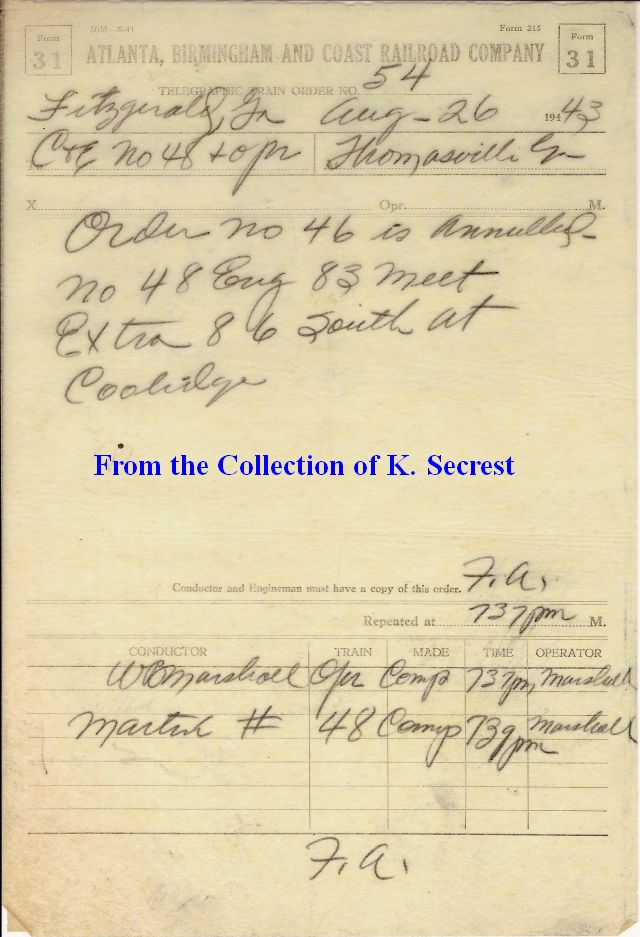 50M—8-41 Form 315
Form 31 ATLANTA, BIRMINGHAM AND COAST RAILROAD COMPANY Form 31
TELEGRAPHIC TRAIN ORDER NO. 54
Fitzgerald, Ga Aug-26 1943
To C+E No 48 + opr Thomasville Ga
X Opr. M.
Order no 46 is annulled
no 48 Eng 83 meet
Extra 86 South at
Coolidge
From the Collection of K. Secrest
Conductor and Engineman must have a copy of this order. F.A.
Repeated at 737pm M.
CONDUCTOR TRAIN MADE TIME OPERATOR
WBMarshall Opr Comp 737pm Marshall
# 48 Comp 739pm Marshall
F.A.